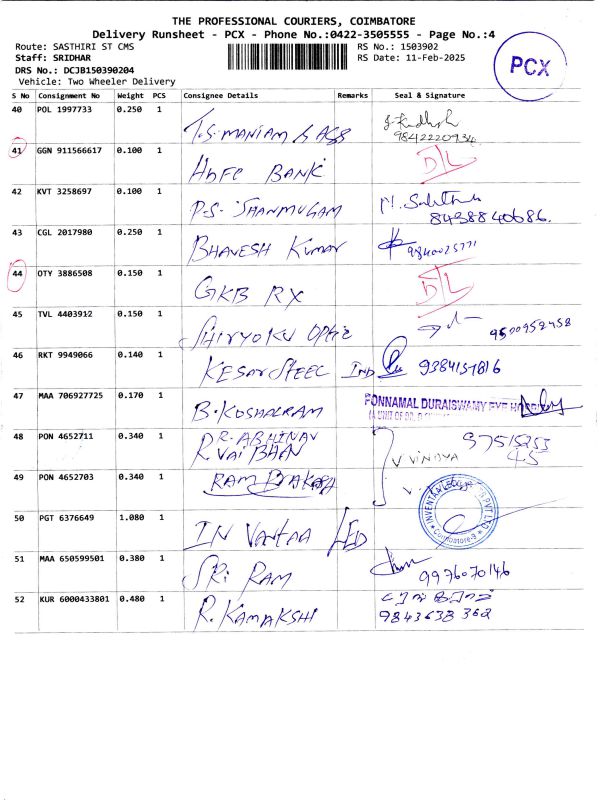 THE PROFESSIONAL COURIERS, COIMBATORE
Delivery Runsheet - PCX - Phone No.:0422-3505555 - Page No.:4
Route: SASTHIRI ST CMS
RS No.: 1503902
Staff: SRIDHAR
RS Date: 11-Feb-2025
DRS No.: DCJB150390204
Vehicle: Two Wheeler Delivery
PCX
S No Consignment No Weight PCS Consignee Details Remarks Seal & Signature
40 POL 1997733 0.250 1 T.S. MANIAM & AGS 9842220934
41 GGN 911566617 0.100 1 HDFC BANK D/L
42 KVT 3258697 0.100 1 P.S. SHANMUGAM 8438840686.
43 CGL 2017980 0.250 1 BHAVESH KUMAR 9840025771
44 OTY 3886508 0.150 1 GKB RX D/L
45 TVL 4403912 0.150 1 SHIRYOKU OPTIC 9500952458
46 RKT 9949066 0.140 1 KESAR STEEL IND 9384151816
47 MAA 706927725 0.170 1 B. KOSHALRAM PONNAMAL DURAISWAMY EYE
48 PON 4652711 0.340 1 R.R. ABHINAV
R. VAIBHAV
V VINDYA 97515253
45
49 PON 4652703 0.340 1 RAM PRAKASH
50 PGT 6376649 1.080 1 IN VANTAA LED PVT LTD Coimbatore-9
51 MAA 650599501 0.380 1 SRI RAM 9976070146
52 KUR 6000433801 0.480 1 R. KAMAKSHI
9843638 362